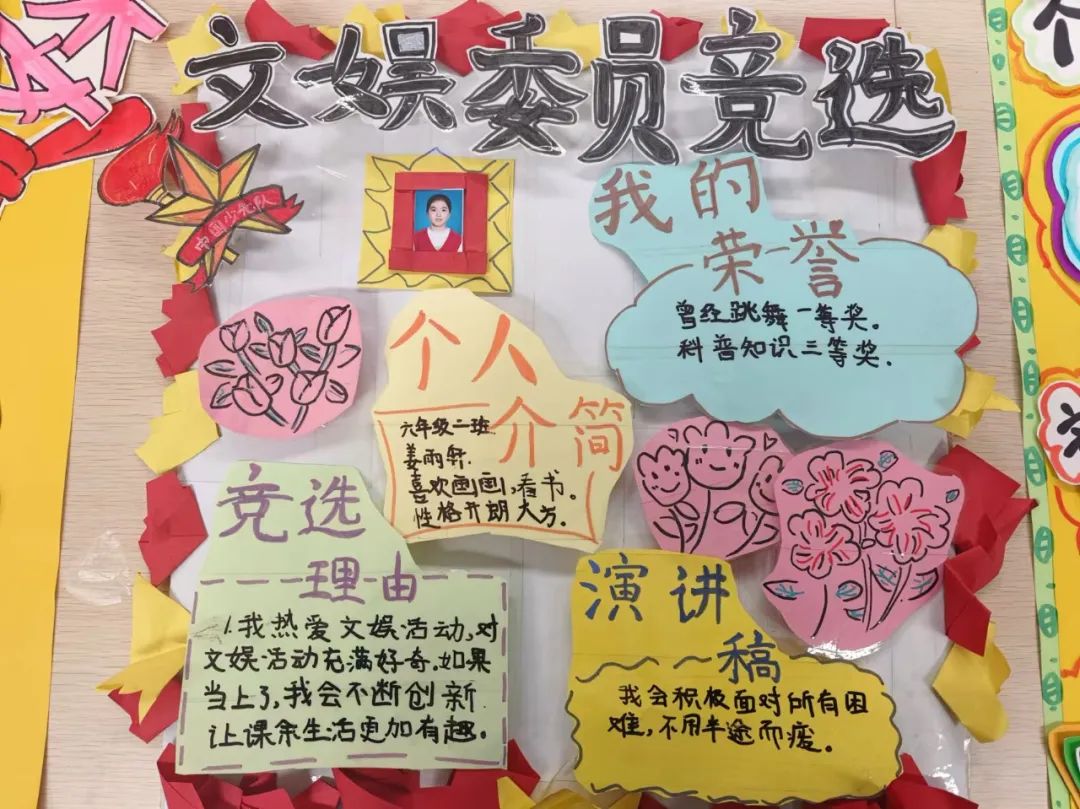 文娱委员竞选
中国少先队
我的
荣誉
曾经跳舞一等奖。
科普知识三等奖.
个人
介简
六年级二班.
姜雨轩.
喜欢画画,看书。
性格开朗大方.
竞选
理由
1.我热爱文娱活动,对
文娱活动充满好奇.如果
当上了,我会不断创新
让课余生活更加有趣.
演讲
稿
我会积极面对所有困
难,不用半途而废。